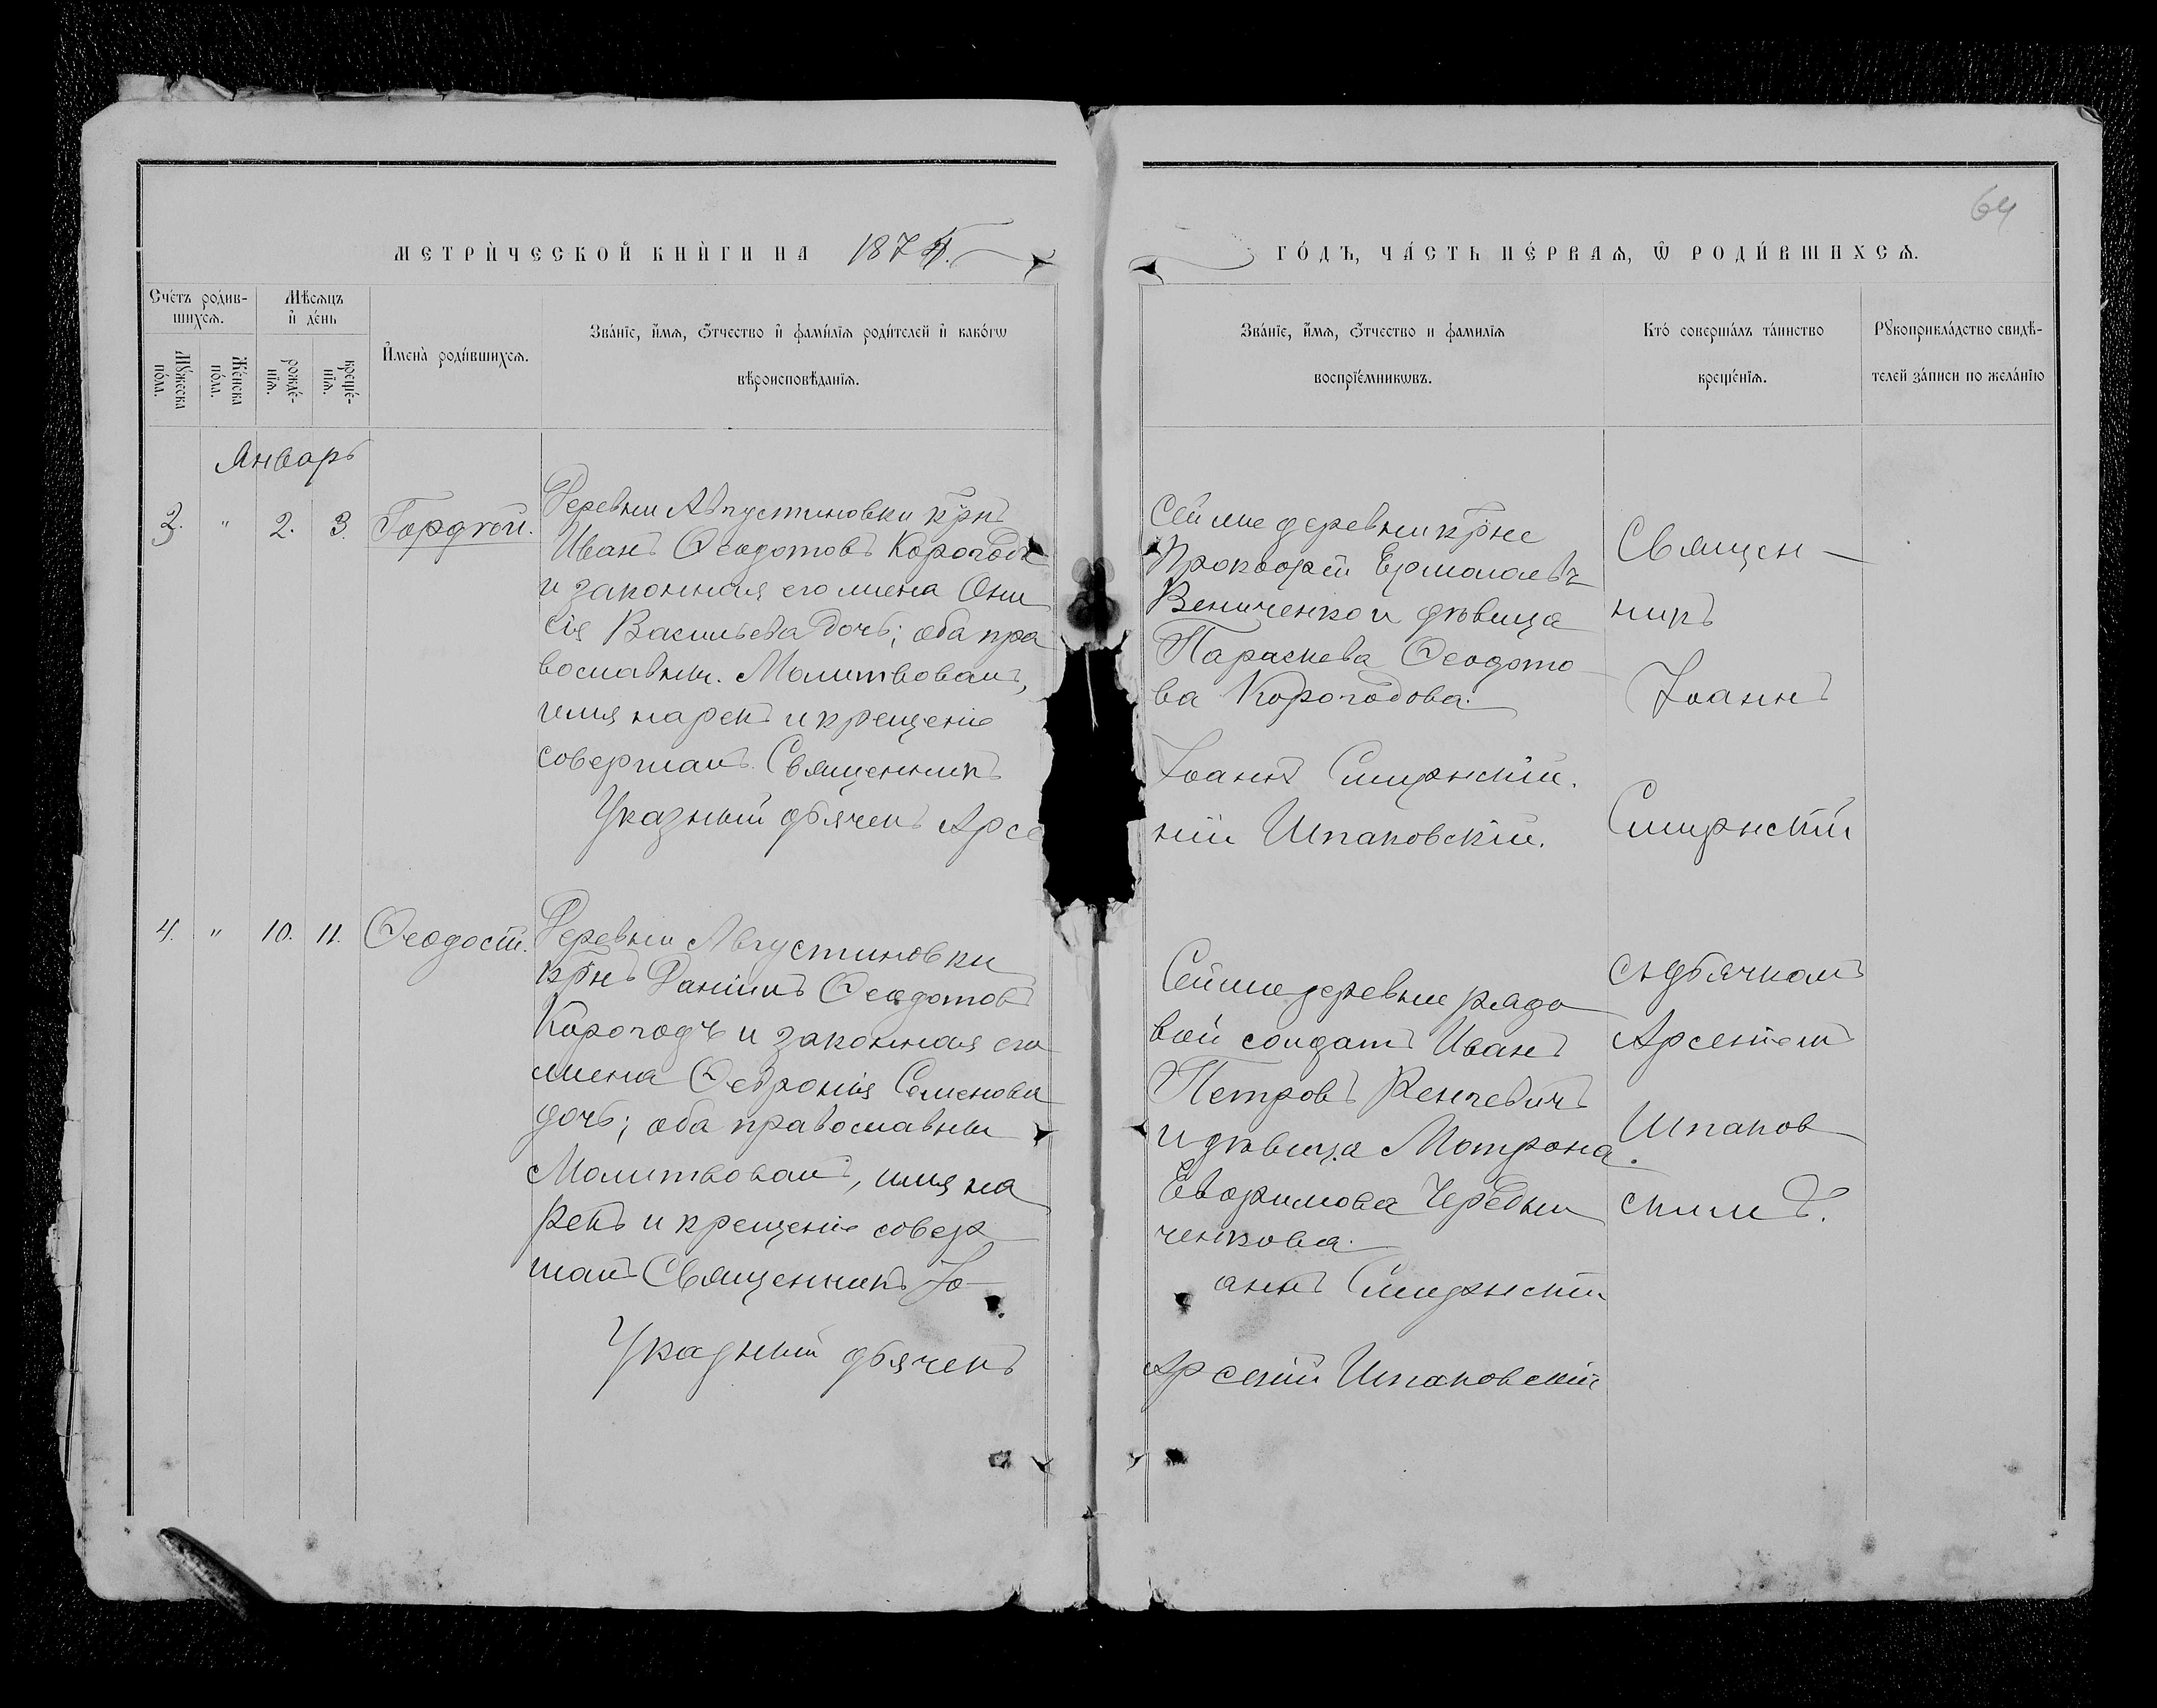 64
МЕТРИ́ЧЕСКОЙ КНИ́ГИ НА 1875.
ГО́ДЪ, ЧА́СТЬ ПЕ́РВАѦ, Ѿ РОДИ́ВШИХСѦ.
Сче́тъ роди́в-
шихсѧ.
Мѣ́сѧцъ
и҆ де́нь
Мꙋ́жеска
по́ла.
Же́нска
по́ла.
рожде́-
нїѧ.
креще́-
нїѧ.
И҆мена̀ роди́вшихсѧ.
Зва́нїе, и҆́мѧ, ѻ҆́тчество и҆ фами́лїѧ роди́телей и҆ како́гѡ
вѣроисповѣ́данїѧ.
Зва́нїе, и҆́мѧ, ѻ҆́тчество и фамилїѧ
воспрїе́мникѡвъ.
Кто̀ соверша́лъ та́инство
креще́нїѧ.
Рꙋкоприкла́дство свидѣ́-
телей за́писи по жела́нїю
Январь
3. " 2. 3. Гордѣй.
Деревни Августиновки крнъ
Иванъ Ѳеодотовъ Корогодъ
и законная его жена Они
сія Васильева дочь; оба пра
вославны. Молитвовалъ,
имя нарекъ и крещеніе
совершалъ Священникъ
Указный дьячекъ Арсе
Сей же деревни крне
Прокофій Ермолаевъ
Величенко и дѣвица
Параскева Ѳеодото
ва Корогодова.
Іоаннъ Смирнскій.
ній Шпаковскій.
Священ-
никъ
Іоаннъ
Смирнскій
4. " 10. 11. Ѳеодосій.
Деревни Августиновки
крнъ Даніилъ Ѳеодотовъ
Корогодъ и законная его
жена Ѳевронія Семенова
дочь; оба православны
Молитвовалъ, имя на
рекъ и крещеніе совер
шалъ Священникъ Іо-
Указный дьячекъ
Сей же деревни рядо
вой солдатъ Иванъ
Петровъ
и дѣвица Мотрона
Евфимова Чередни
ченкова.
аннъ Смирнскій
Арсеній Шпаковскій
съ дьячкомъ
Арсеніемъ
Шпаков
скимъ.